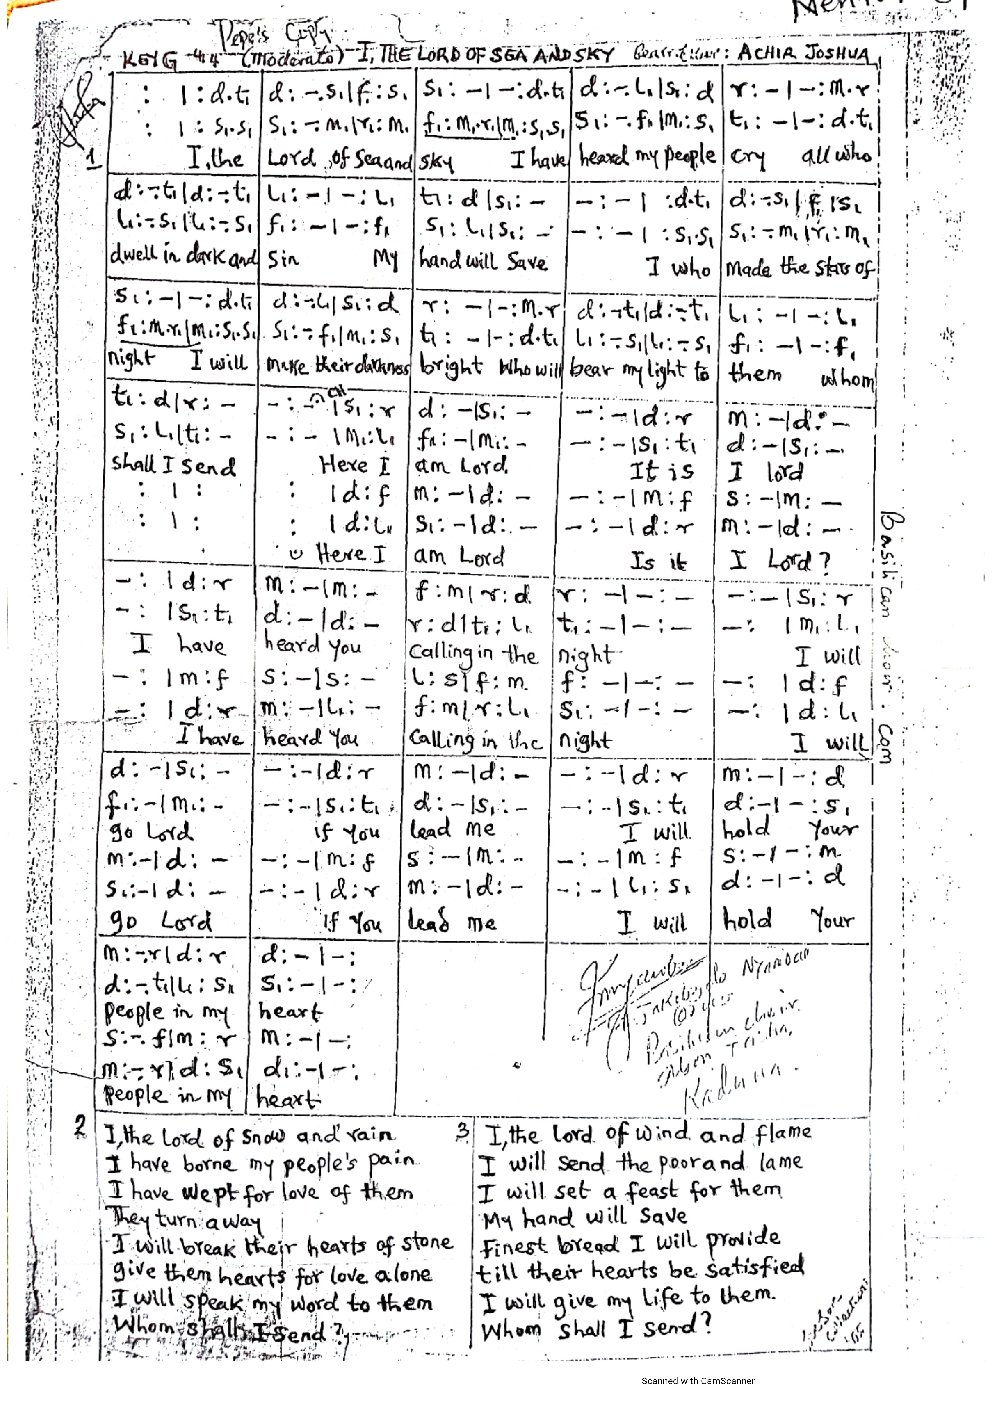 Pepe's City
KEY G 4/4 (Moderato) I, THE LORD OF SEA AND SKY : ACHIR JOSHUA
: |: d.t₁ | d: -.s₁|f₁: s₁ | s₁: -|-: d.t₁ | d: -.l₁|s₁: d | r: -|-: m.r
: |: s₁.s₁ | s₁: -.m₁|r₁: m₁ | f₁: m₁.r₁|m₁: s₁.s₁ | s₁: -.f₁|m₁: s₁ | t₁: -|-: d.t₁
1 I, the Lord of Sea and sky I have heard my people cry all who
d: -.t₁|d: -.t₁ | l₁: -|-: l₁ | t₁: d|s₁: - | -: -| : d.t₁ | d: -.s₁|f₁|s₁
l₁: -.s₁|l₁: -.s₁ | f₁: -|-: f₁ | s₁: l₁|s₁: - | -: -| : s₁.s₁ | s₁: -.m₁|r₁: m₁
dwell in dark and Sin My hand will Save I who Made the stars of
s₁: -|-: d.t₁ | d: -.l₁|s₁: d | r: -|-: m.r | d: -.t₁|d: -.t₁ | l₁: -|-: l₁
f₁: m₁.r₁|m₁: s₁.s₁ | s₁: -.f₁|m₁: s₁ | t₁: -|-: d.t₁ | l₁: -.s₁|l₁: -.s₁ | f₁: -|-: f₁
night I will make their darkness bright Who will bear my light to them whom
t₁: d|r: - | -: -|s₁: r | d: -|s₁: - | -: -|d: r | m: -|d: -
s₁: l₁|t₁: - | -: -|m₁: l₁ | f₁: -|m₁: - | -: -|s₁: t₁ | d: -|s₁: -
shall I send Here I am Lord It is I lord
: | : | : |d: f | m: -|d: - | -: -|m: f | s: -|m: -
: | : | : |d: l₁ | s₁: -|d: - | -: -|d: r | m: -|d: -
Here I am Lord Is it I Lord?
-: |d: r | m: -|m: - | f: m|r: d | r: -|-: - | -: -|s₁: r
-: |s₁: t₁ | d: -|d: - | r: d|t₁: l₁ | t₁: -|-: - | -: |m₁: l₁
I have heard you calling in the night I will
-: |m: f | s: -|s: - | l: s|f: m | f: -|-: - | -: |d: f
-: |d: r | m: -|l₁: - | f: m|r: l₁ | s₁: -|-: - | -: |d: l₁
I have heard You calling in the night I will
d: -|s₁: - | -: -|d: r | m: -|d: - | -: -|d: r | m: -|-: d
f₁: -|m₁: - | -: -|s₁: t₁ | d: -|s₁: - | -: -|s₁: t₁ | d: -|-: s₁
go Lord if You lead me I will hold Your
m: -|d: - | -: -|m: f | s: -|m: - | -: -|m: f | s: -|-: m
s₁: -|d: - | -: -|d: r | m: -|d: - | -: -|l₁: s₁ | d: -|-: d
go Lord if You lead me I will hold Your
m: -.r|d: r | d: -|-:
d: -.t₁|l₁: s₁ | s₁: -|-:
people in my heart
s: -.f|m: r | m: -|-:
m: -.r|d: s₁ | d: -|-:
people in my heart
Kaduna.
Basilican choir. com
2 I, the Lord of Snow and rain
I have borne my people's pain
I have wept for love of them
They turn away
I will break their hearts of stone
give them hearts for love alone
I will speak my word to them
Whom shall I send?
3 I, the Lord of wind and flame
I will send the poor and lame
I will set a feast for them
My hand will save
Finest bread I will provide
till their hearts be satisfied
I will give my life to them.
Whom shall I send?
Scanned with CamScanner